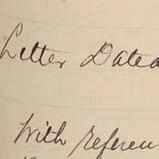 Letter Dated
With referen